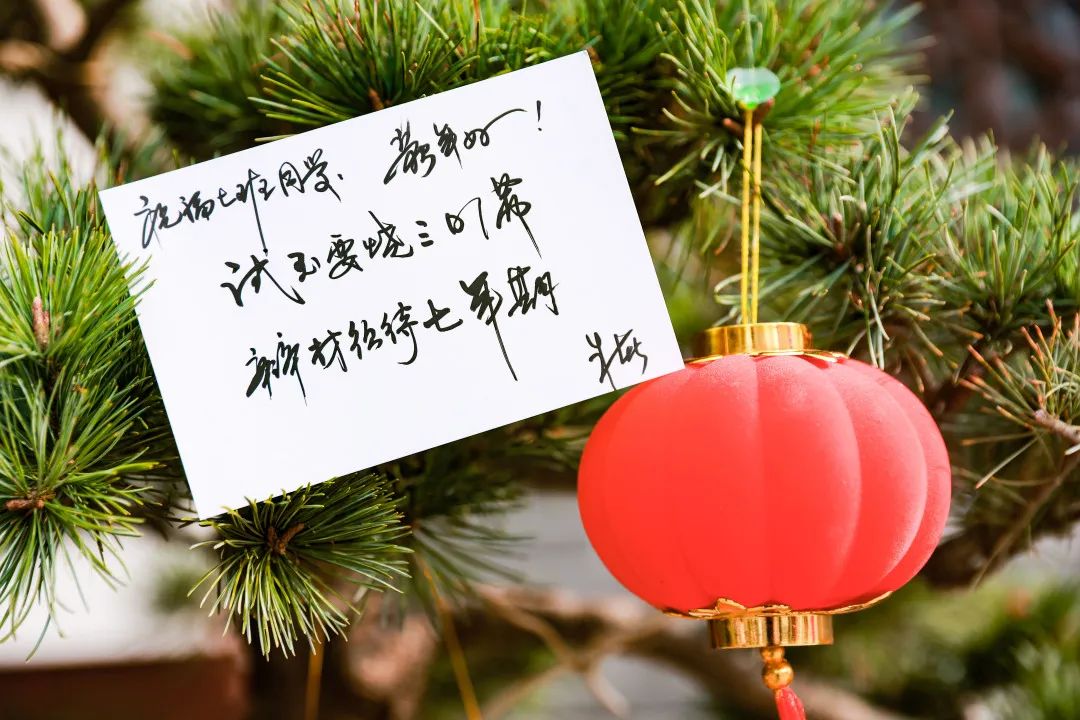 祝福七班同学 新年好！
试玉要烧三日满
辨材须待七年期